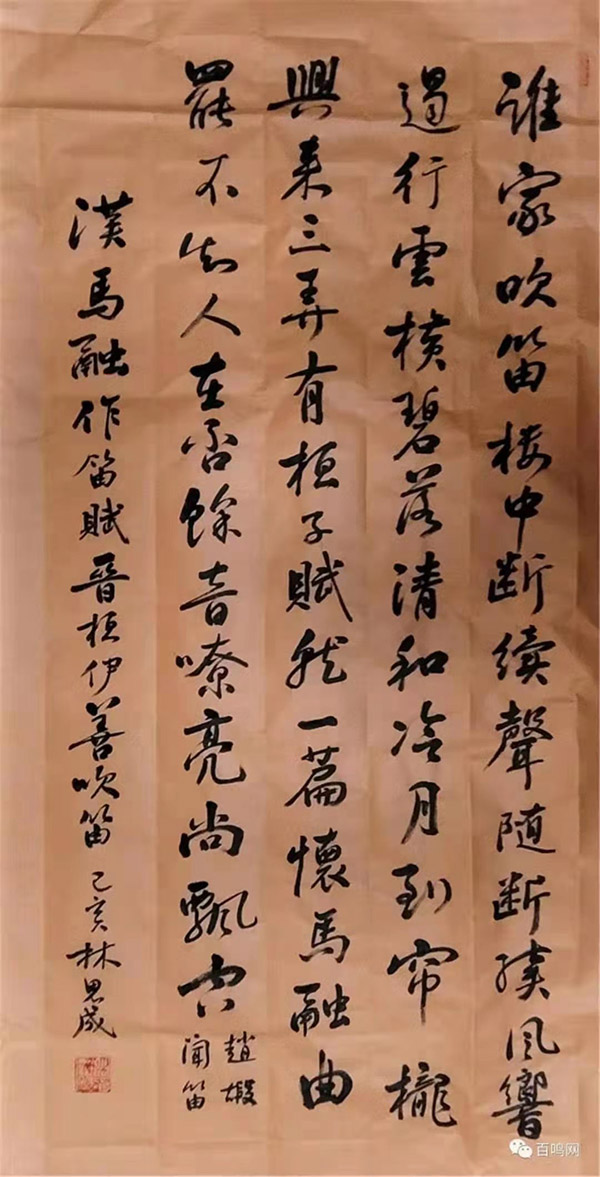 誰家吹笛楼中断續聲随断續风響
遏行雲横碧落清和冷月到帘櫳
興来三弄有桓子賦就一篇懷馬融曲
罷不知人在否餘音嘹亮尚飄空
趙嘏
闻笛
漢馬融作笛賦晋桓伊善吹笛 己亥林思成
百鸣网